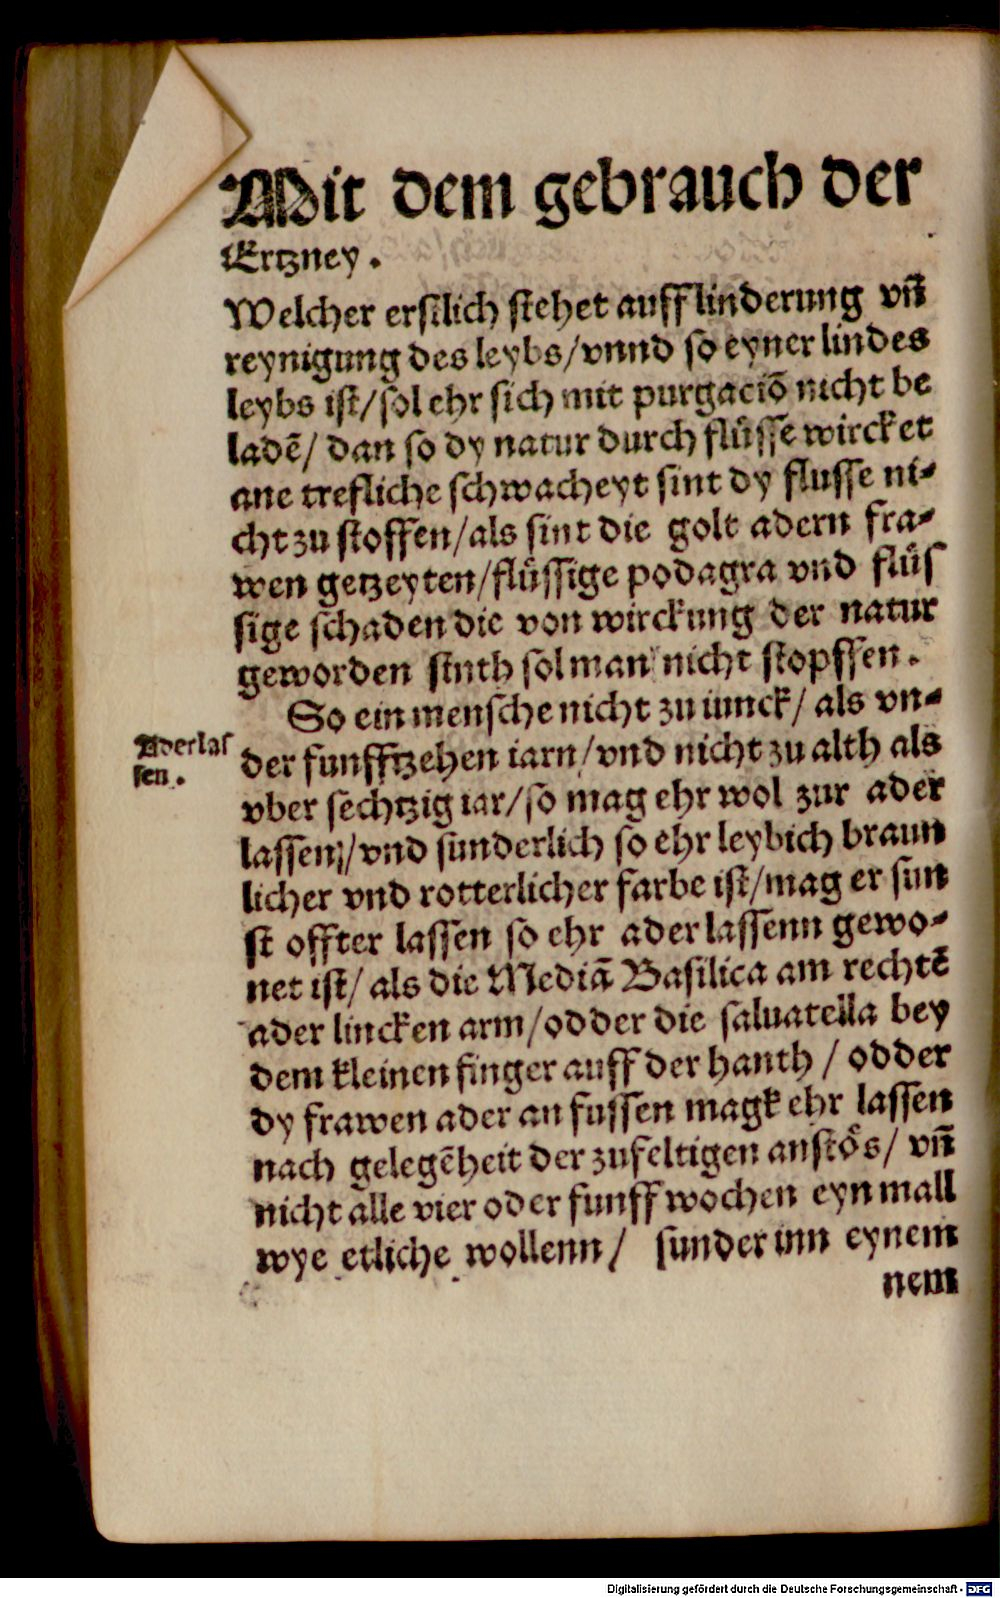 Mit dem gebrauch der
Ertzney.
Welcher erstlich stehet auff linderung vñ
reynigung des leybs/vnnd so eyner lindes
leybs ist/sol ehr sich mit purgaciõ nicht be
ladẽ/ dan so dy natur durch flůsse wircket
ane trefliche schwacheyt sint dy flusse ni-
cht zu stoffen/als sint die golt adern fra-
wen getzeyten/flůssige podagra vnd flůs
sige schaden die von wirckung der natur
geworden sinth sol man nicht stopffen.
So ein mensche nicht zu iunck/ als vn-
Aderlas
sen.
der funfftzehen iarn/vnd nicht zu alth als
vber sechtzig iar/so mag ehr wol zur ader
lassenn/vnd sunderlich so ehr leybich braun
licher vnd rotterlicher farbe ist/mag er sun
st offter lassen so ehr aderlassenn gewo-
net ist/ als die Mediã Basilica am rechtẽ
ader lincken arm/odder die saluatella bey
dem kleinen finger auff der hanth / odder
dy frawen ader an fussen magk ehr lassen
nach gelegẽheit der zufeltigen anstős/ vñ
nicht alle vier oder funff wochen eyn mall
wye etliche wollenn/ sunder inn eynem
nem
Digitalisierung gefördert durch die Deutsche Forschungsgemeinschaft - DFG